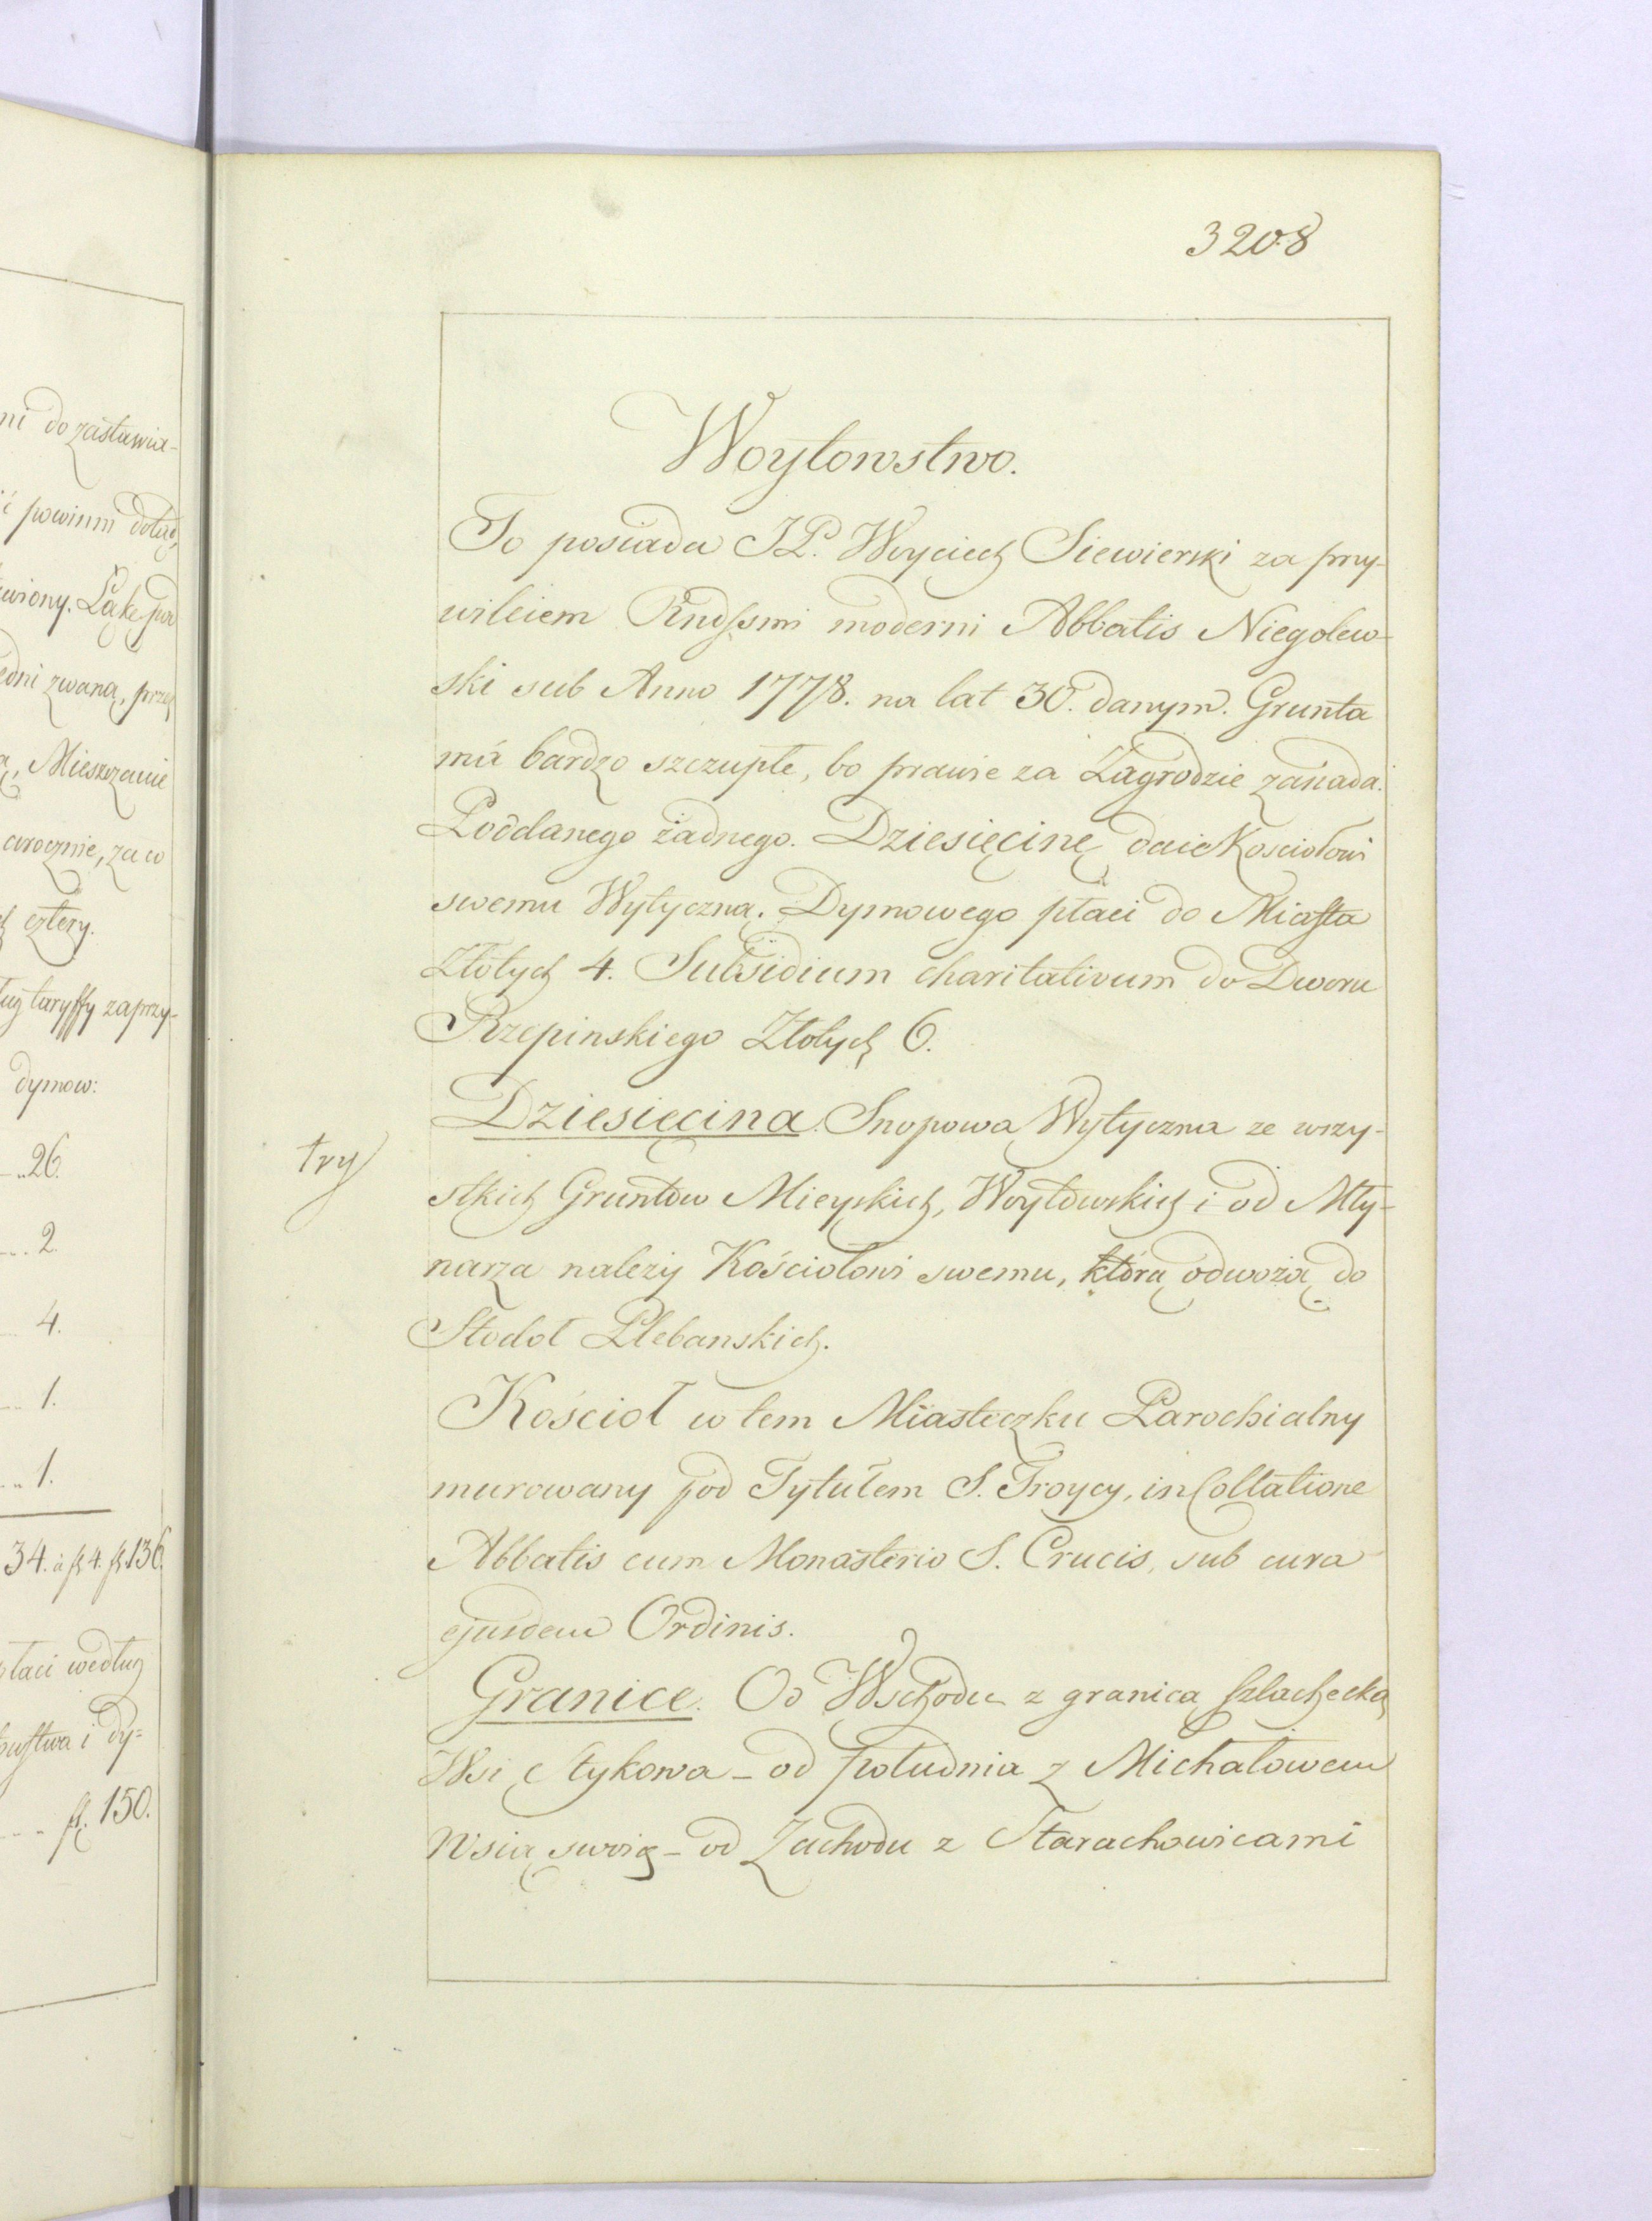 ni do zastawia-
ć powinni dotąd,
wiony. Łąkę pod
edni zwaną, przez
ą, Mieszczanie
corocznie, za co
cztery.
ług taryffy zaprzy-
dymow:
26.
2.
4.
1.
1.
34. à fl 4. fl 136.
płaci według
bustwa i dy=
fl. 150.
3208
Woytowstwo.
To posiada JP. Woyciech Siewierski za przy-
wileiem Rndssmi moderni Abbatis Niegolew-
ski sub Anno 1778. na lat 30. danym. Grunta
má bardzo szczupłe, bo prawie za Zagrodzie zasiada.
Poddanego żadnego. Dziesięcinę daie Kosciołowi
swemu Wytyczną. Dymowego płaci do Miasta
Złotych 4. Subsidium charitativum do Dworu
Rzepinskiego Złotych 6.
Dziesięcina. Snopowa Wytyczna ze wszy-
try
stkich Gruntow Mieyskich, Woytowskich i od Mły-
narza należy Kościołowi swemu, którą odwożą do
Stodoł Plebanskich.
Kościoł w tem Miasteczku Parochialny
murowany pod Tytułem S. Troycy, in Collatione
Abbatis cum Monasterio S. Crucis, sub cura
ejusdem Ordinis.
Granice. Od Wschodu z granicą szlachecką
Wsi Stykowa - od południa z Michałowem
Wsią swoią - od Zachodu z Starachowicami